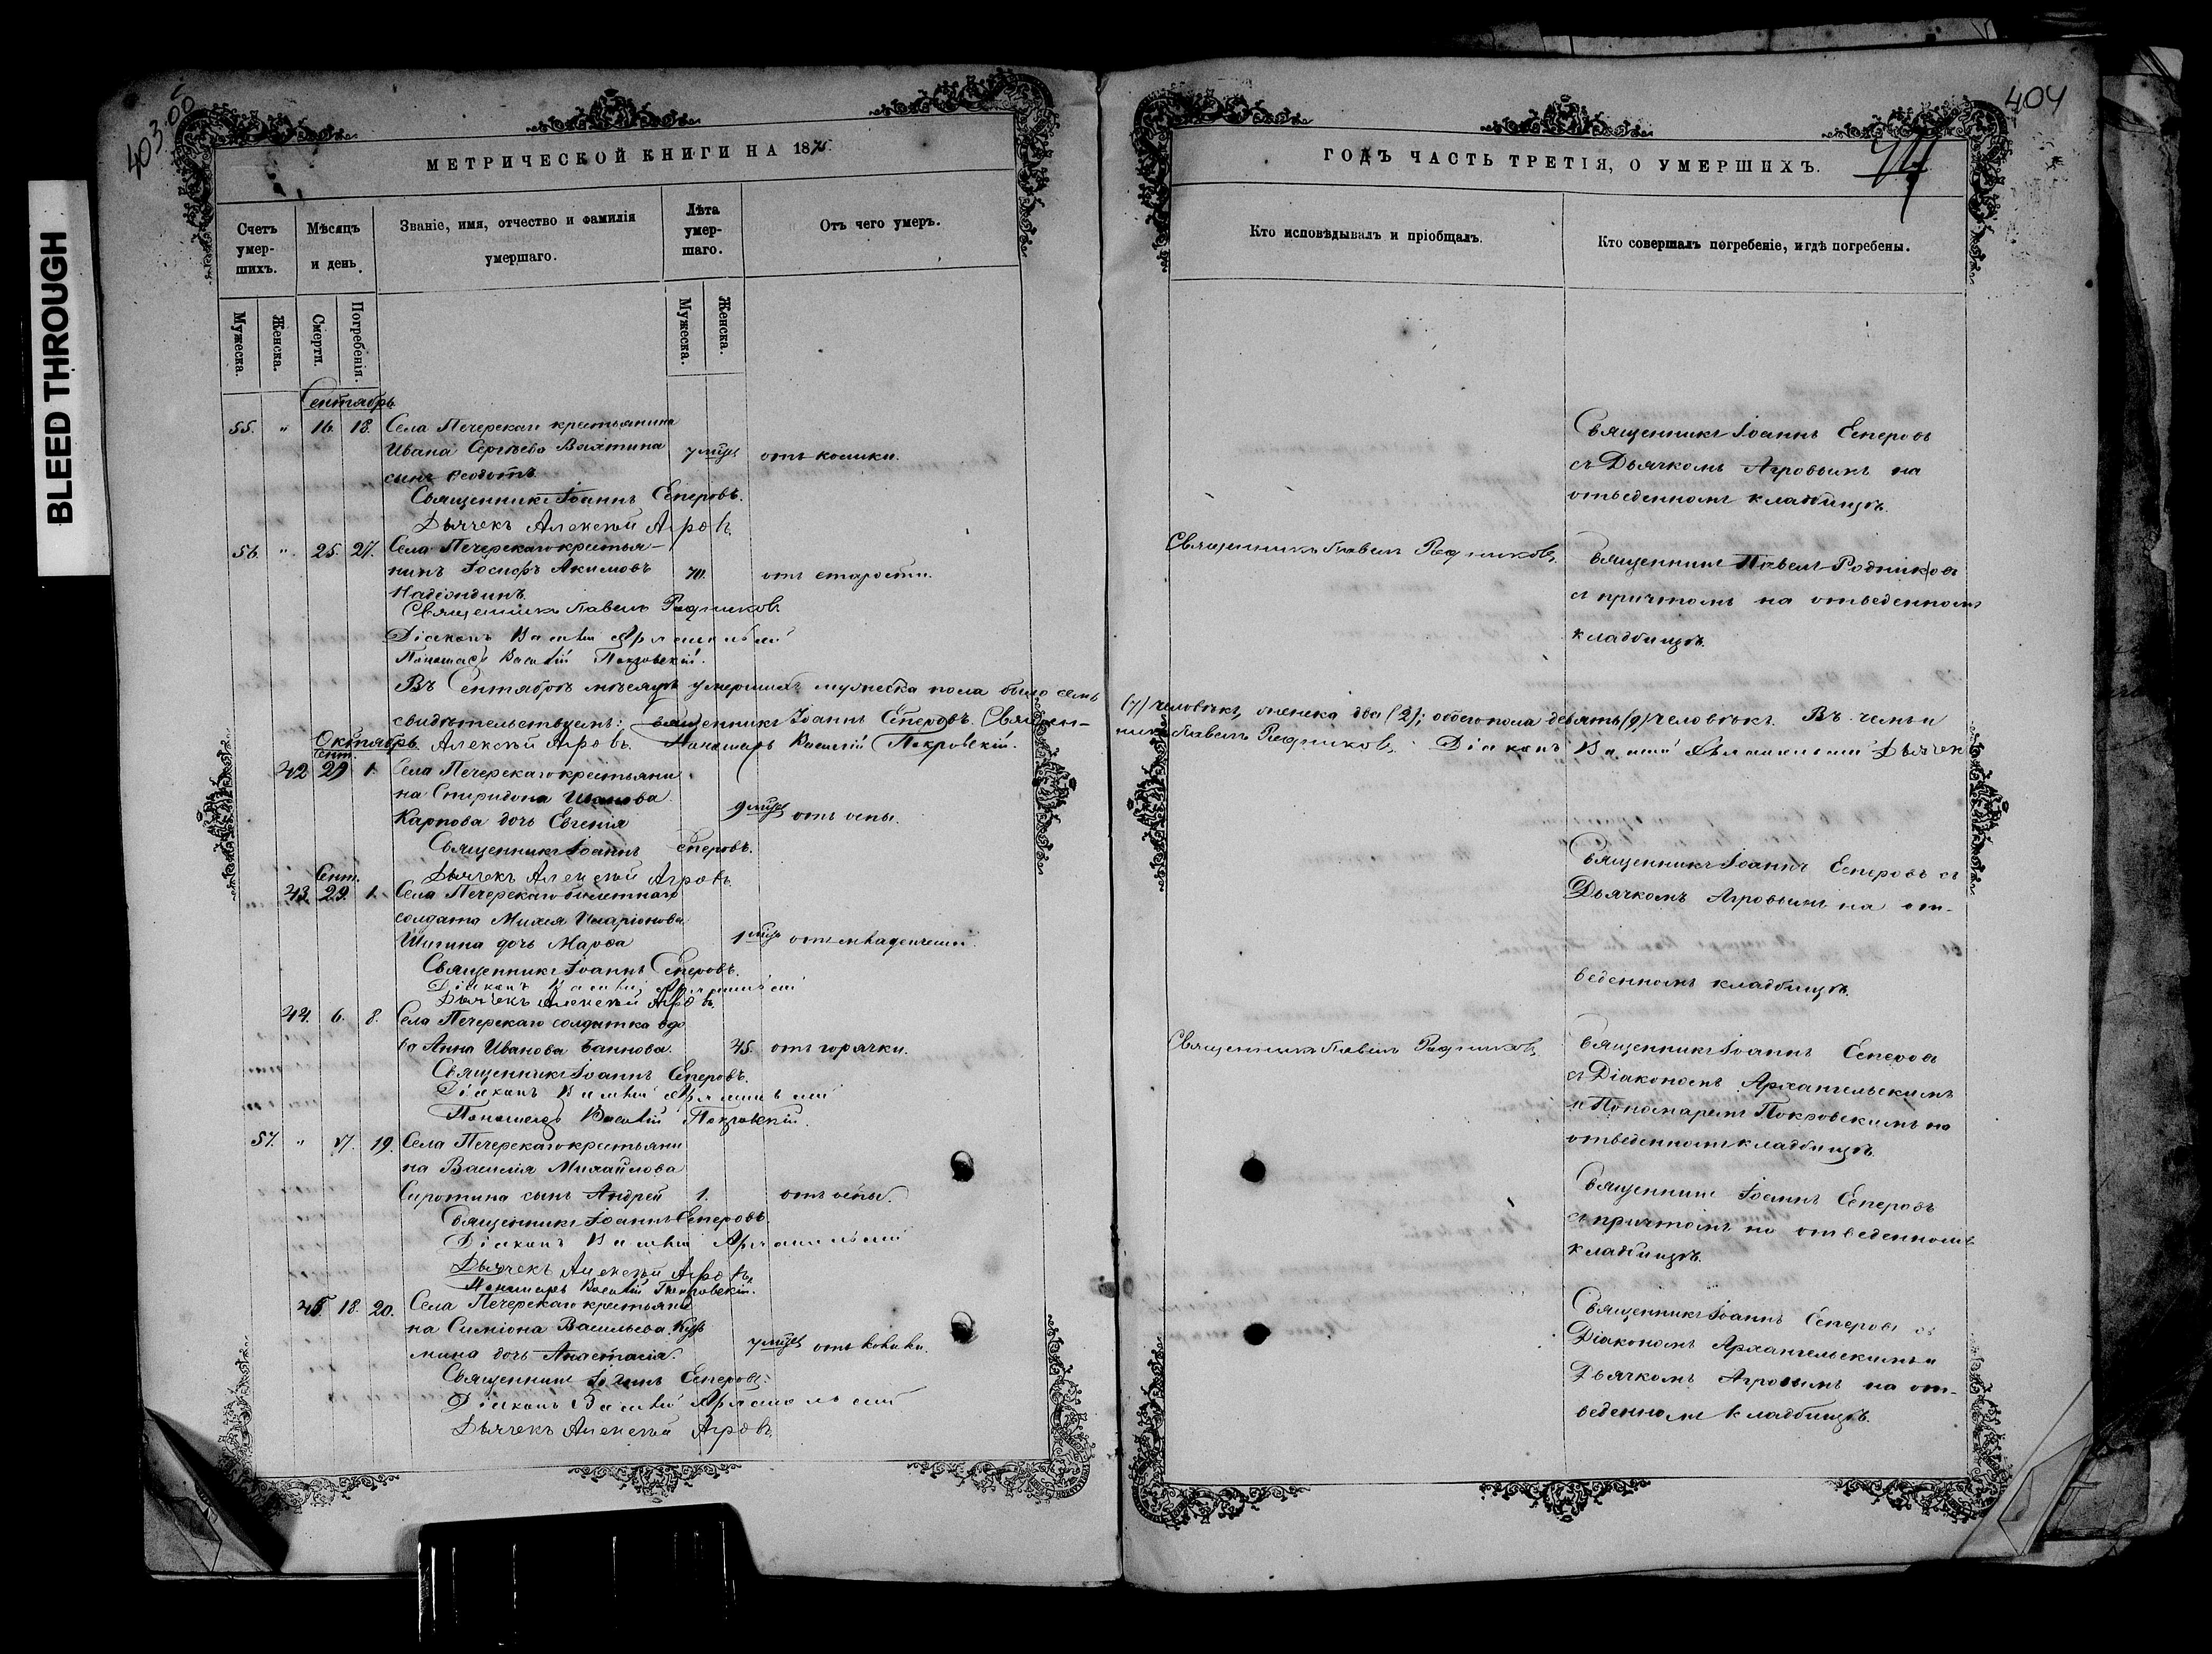 BLEED THROUGH
403 об
МЕТРИЧЕСКОЙ КНИГИ НА 187
Счетъ умер-шихъ.
Мѣсяцъ и день
Званіе, имя, отчество и фамилія умершаго.
Лѣта умер-шаго.
Отъ чего умеръ.
Мужеска.
Женска.
Смерти.
Погребенія.
Мужеска.
Женска.
Сентябрь
55. " 16. 18. Села Печерскаго крестьянина
Ивана Сергѣева
7 мѣс отъ колики.
сынъ Ѳеодотъ.
Священникъ Іоаннъ Еперовъ.
Дьячекъ Алексѣй Агровъ.
56. " 25. 27. Села Печерскаго крестья-
нинъ Іосифъ Акимовъ 70. отъ старости.
Священникъ Павелъ Родниковъ
Діаконъ Василій Архангельскій
Пономарь Василій Покровскій.
Въ Сентябрѣ мѣсяцѣ умершихъ мужеска пола было семь
свидѣтельствуемъ: Священникъ Іоаннъ Еперовъ. Священ-
Алексѣй Агровъ. Пономарь Василій Покровскій.
Октябрь
Сент.
42 29 1. Села Печерскаго крестьяни
на Спиридона Иванова
Карпова дочь Евгенія 9 мѣс отъ оспы.
Священникъ Іоаннъ Еперовъ.
Дьячекъ Алексѣй Агровъ.
Сент.
43. 29. 1. Села Печерскаго билетнаго
солдата Иларіонова
Шигина дочь Марѳа 1 мѣс отъ младенческой.
Священникъ Іоаннъ Еперовъ.
Діаконъ Василій Архангельскій
Дьячекъ Алексѣй Агровъ.
44. 6. 8. Села Печерскаго солдатка вдо
ва Анна Иванова Баннова. 45. отъ горячки.
Священникъ Іоаннъ Еперовъ.
Діаконъ Василій Архангельскій
Пономарь Василій Покровскій.
57. " 17. 19. Села Печерскаго крестьяни
на Василія Михайлова
Сиротина сынъ Андрей 1. отъ оспы.
Священникъ Іоаннъ Еперовъ.
Діаконъ Василій Архангельскій
Дьячекъ Алексѣй Агровъ.
Пономарь Василій Покровскій.
45 18. 20. Села Печерскаго крестьяни
на Симіона Васильева Кузь
мина дочь Анастасія. 7 мѣс отъ колики.
Священникъ Іоаннъ Еперовъ.
Діаконъ Василій Архангельскій
Дьячекъ Алексѣй Агровъ.
404
ГОДЪ ЧАСТЬ ТРЕТІЯ, О УМЕРШИХЪ.
Кто исповѣдывалъ и пріобщалъ.
Кто совершалъ погребеніе, и гдѣ погребены.
Священникъ Іоаннъ Еперовъ
съ Дьячкомъ Агровымъ на
отведенномъ кладбищѣ.
Священникъ Павелъ Родниковъ. Священникъ Павелъ Родниковъ
съ причтомъ на отведенномъ
кладбищѣ.
(7) человѣкъ, женска два (2); обоего пола девять (9) человѣкъ. Въ чемъ и
никъ Павелъ Родниковъ. Діаконъ Василій Архангельскій Дьячек
Священникъ Іоаннъ Еперовъ съ
Дьячкомъ Агровымъ на от-
веденномъ кладбищѣ.
Священникъ Павелъ Родниковъ. Священникъ Іоаннъ Еперовъ
съ Діакономъ Архангельскимъ
и Пономаремъ Покровскимъ на
отведенномъ кладбищѣ.
Священникъ Іоаннъ Еперовъ
съ причтомъ на отведенномъ
кладбищѣ.
Священникъ Іоаннъ Еперовъ съ
Діакономъ Архангельскимъ и
Дьячкомъ Агровымъ на от-
веденномъ кладбищѣ.